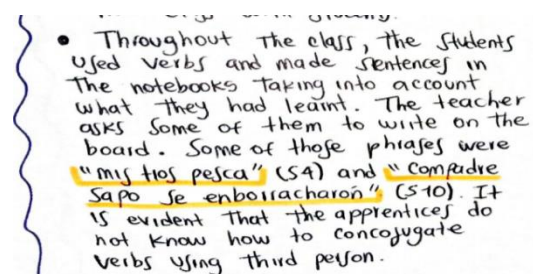 • Throughout the class, the students
used verbs and made sentences in
the notebooks taking into account
what they had learnt. The teacher
asks some of them to write on the
board. Some of those phrases were
"mis tios pesca" (S4) and "compadre
sapo se enborracharon" (S10). It
is evident that the apprentices do
not know how to concojugate
verbs using third person.